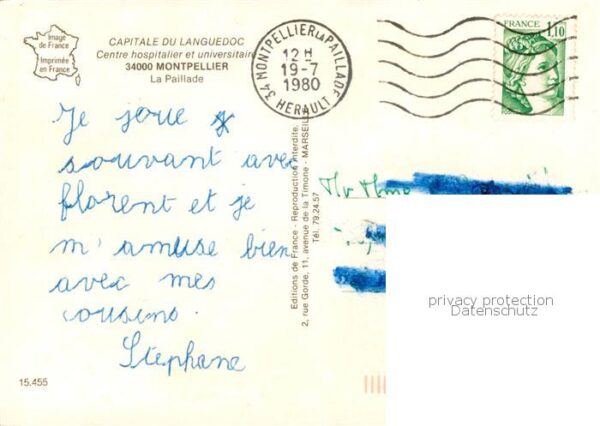 Image
de France
Imprimée
en France
CAPITALE DU LANGUEDOC
Centre hospitalier et universitaire
34000 MONTPELLIER
La Paillade
34 MONTPELLIER LA PAILLADE
12 H
19-7
1980
HERAULT
FRANCE
1,10
Je joue
souvant avec
florent et je
m'amuse bien
avec mes
cousins.
Stephane
Editions de France - Reproduction interdite.
2, rue Gorde, 11, avenue de la Timone - MARSEILLE
Tél. 79.24.57
privacy protection
Datenschutz
15.455